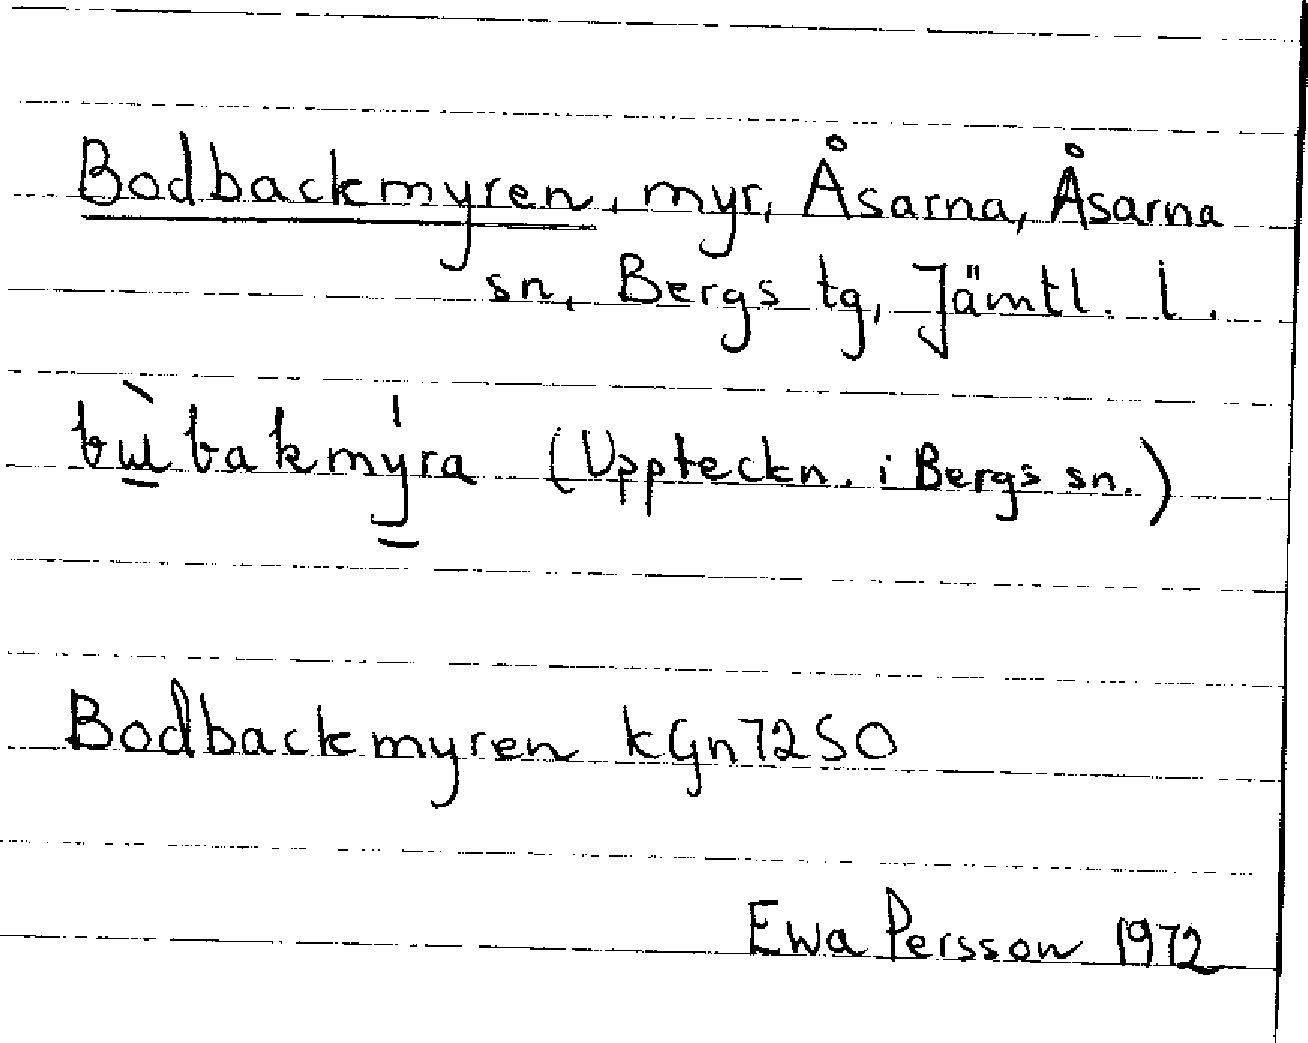 Bodbackmyren, myr, Åsarna, Åsarna
sn, Bergs tg, Jämtl. l.
bɯ̀bakmýra (Uppteckn. i Bergs sn.)
Bodbackmyren kGn72SO
Ewa Persson 1972